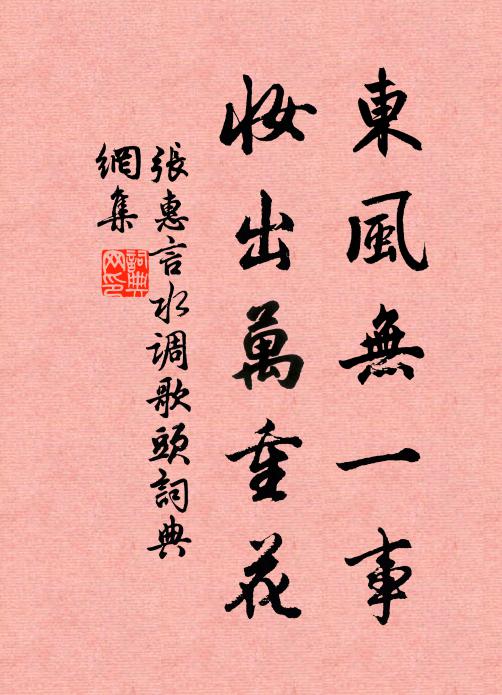 東風無一事
妝出萬重花
張惠言水调歌頭詞典
網集
詞典
网印